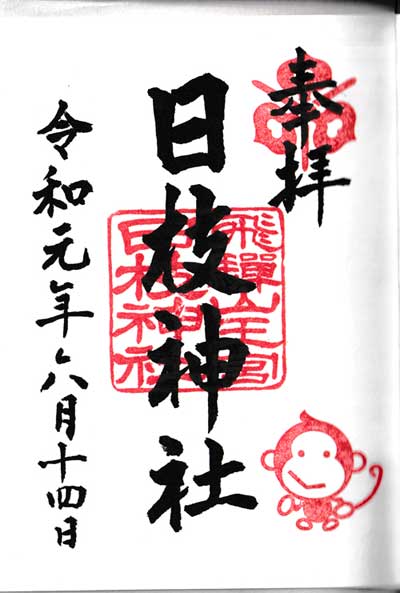 奉拝
日枝神社
飛騨山王宮
日枝神社
令和元年六月十四日